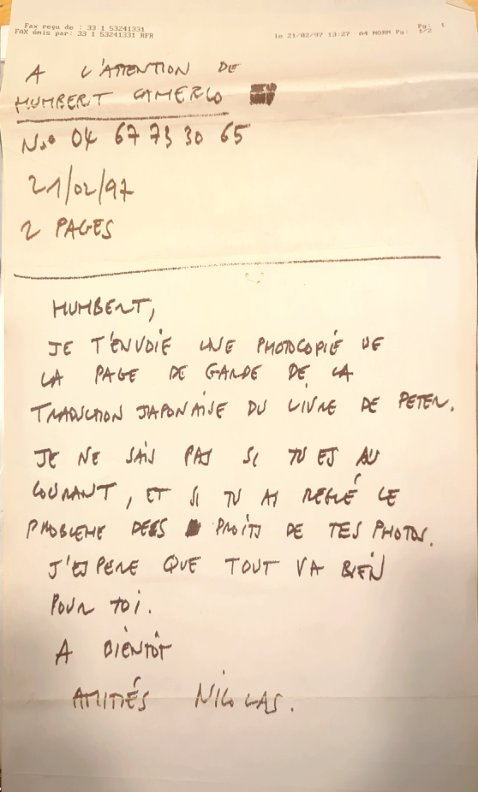 Fax reçu de : 33 1 53241331
FAX émis par: 33 1 53241331 RFR le 21/02/97 13:27 A4 NORM Pg: 1/2
Pg: 1
A L'ATTENTION DE
HUMBERT CAMERLO
N.° 04 67 73 30 65
21/02/97
2 PAGES
HUMBERT,
JE T'ENVOIE UNE PHOTOCOPIÉ DE
LA PAGE DE GARDE DE LA
TRADUCTION JAPONAISE DU LIVRE DE PETER.
JE NE SAIS PAS SI TU ES AU
COURANT, ET SI TU AS REGLÉ LE
PROBLEME DES DROITS DE TES PHOTOS.
J'ESPERE QUE TOUT VA BIEN
POUR TOI.
A BIENTÔT
AMITIÉS NICOLAS.